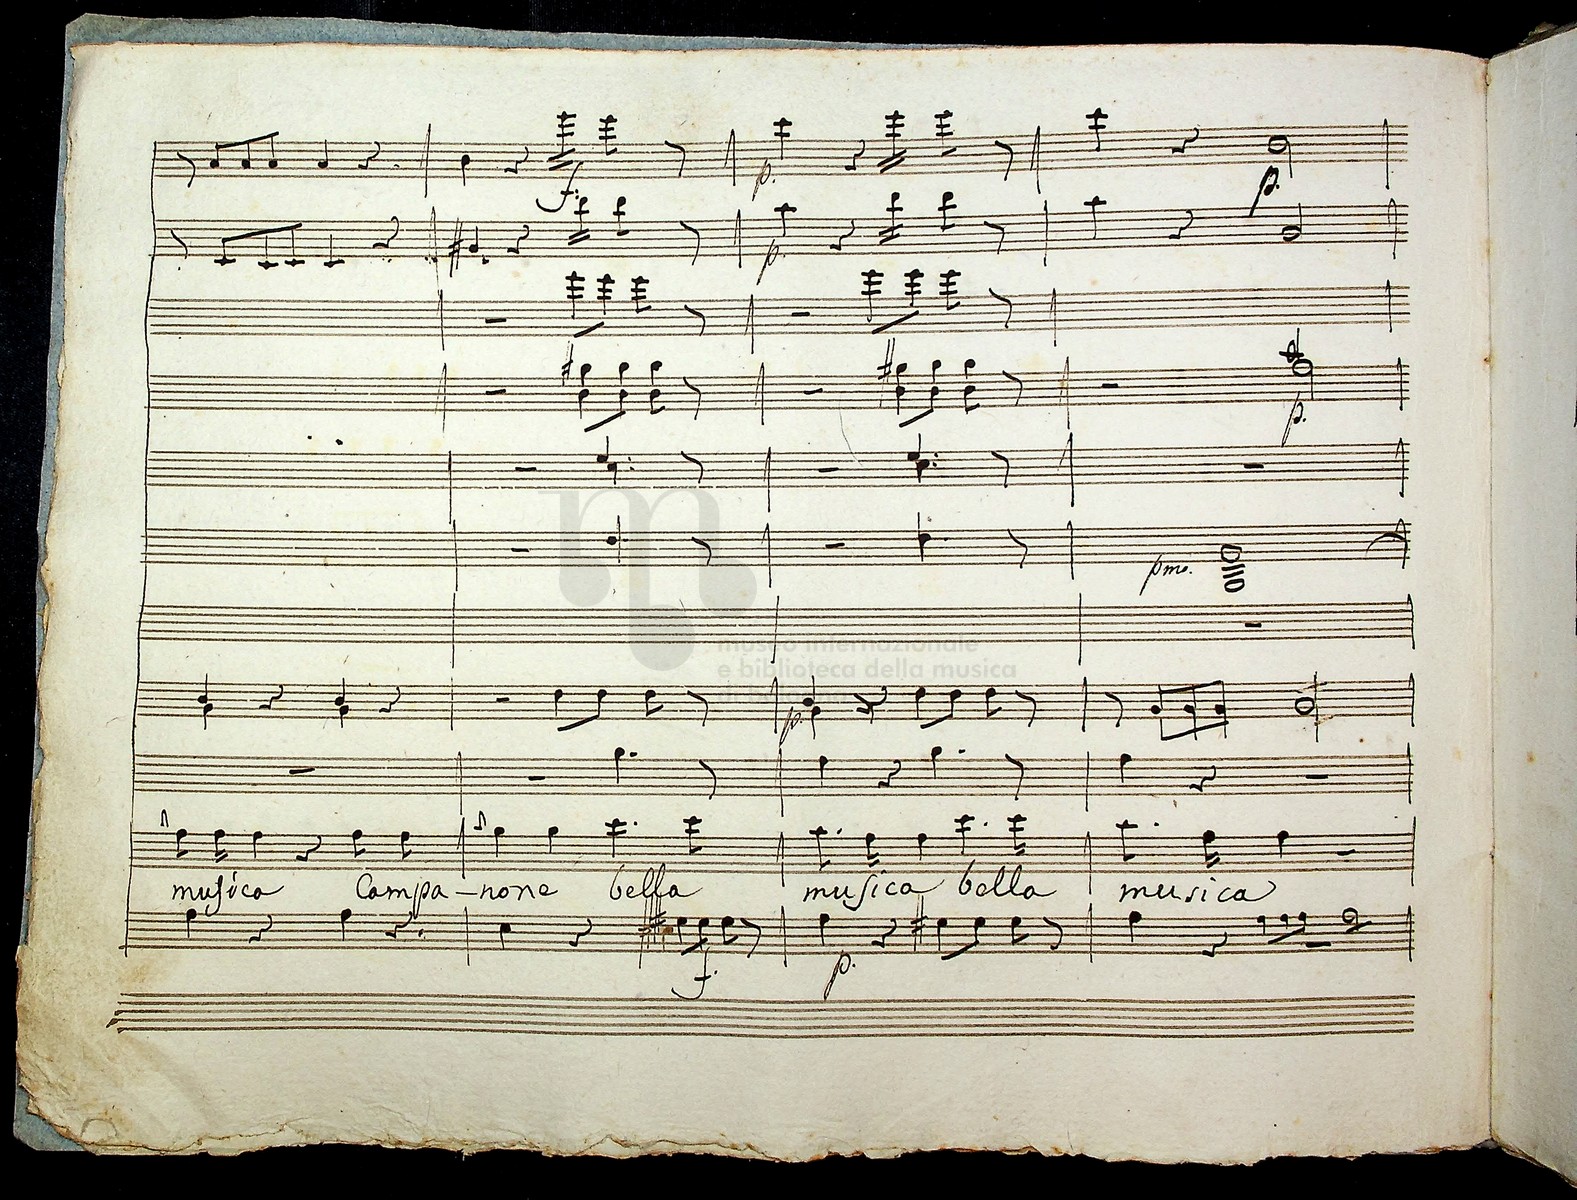 f.
p.
p.
p.
p.
pmo.
museo internazionale
e biblioteca della musica
di bologna
p.
musica Campa-none bella musica bella musica
f.
p.